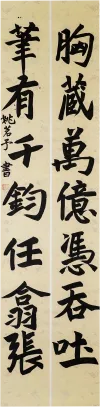 胸藏萬億憑吞吐
筆有千鈞任翕張
姚茗予書